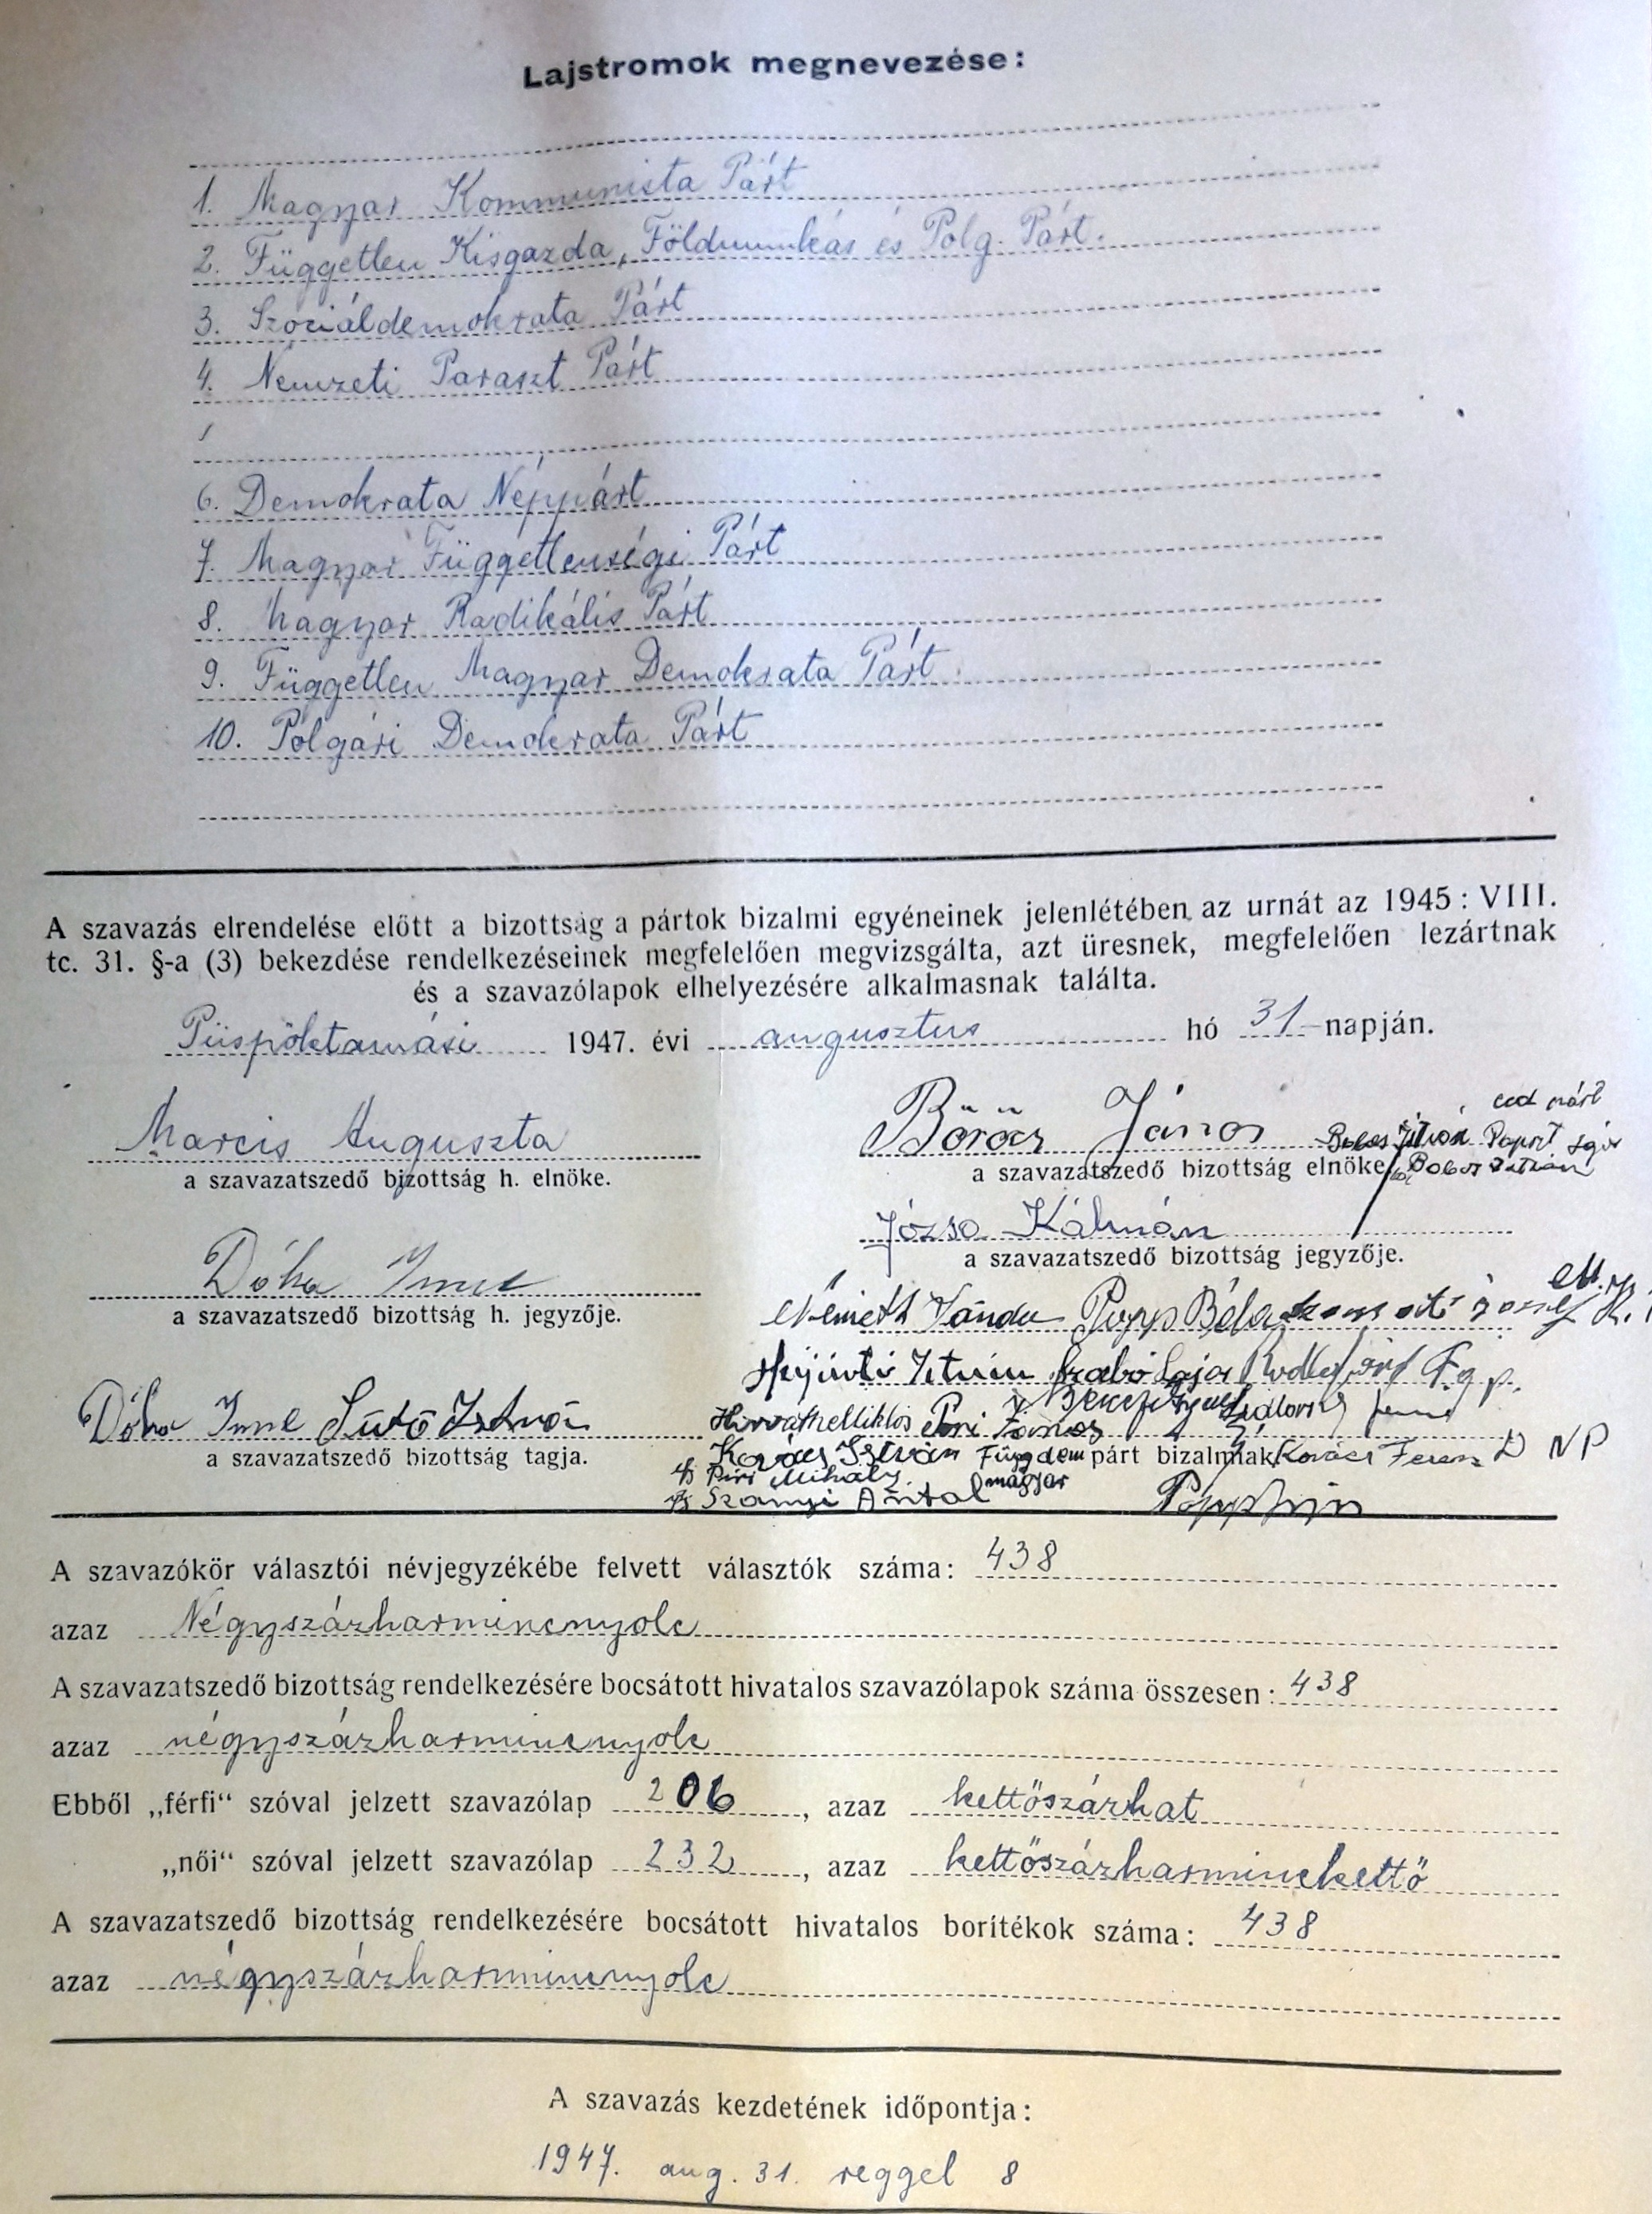 Lajstromok megnevezése:
1. Magyar Kommunista Párt
2. Független Kisgazda, Földmunkás és Polg. Párt.
3. Szociáldemokrata Párt
4. Nemzeti Paraszt Párt
6. Demokrata Néppárt
7. Magyar Függetlenségi Párt
8. Magyar Radikális Párt
9. Független Magyar Demokrata Párt.
10. Polgári Demokrata Párt
A szavazás elrendelése előtt a bizottság a pártok bizalmi egyéneinek jelenlétében az urnát az 1945 : VIII.
tc. 31. §-a (3) bekezdése rendelkezéseinek megfelelően megvizsgálta, azt üresnek, megfelelően lezártnak
és a szavazólapok elhelyezésére alkalmasnak találta.
Püspöktamási 1947. évi augusztus hó 31 napján.
Marcis Auguszta Böröcz János
a szavazatszedő bizottság h. elnöke. a szavazatszedő bizottság elnöke
Józsa Kálmán
a szavazatszedő bizottság jegyzője.
Dóka Imre
a szavazatszedő bizottság h. jegyzője.
Németh Papp Béla
István Szabó F.g.p.
Dóka Imre Sütő István Horváth Miklós Piri János
a szavazatszedő bizottság tagja. Kovács István Függ dem párt bizalminak Kovács Ferenc D NP
Piri Mihály magyar
Szanyi Antal
A szavazókör választói névjegyzékébe felvett választók száma: 438
azaz Négyszázharmincnyolc
A szavazatszedő bizottság rendelkezésére bocsátott hivatalos szavazólapok száma összesen: 438
azaz négyszázharmincnyolc
Ebből „férfi“ szóval jelzett szavazólap 206, azaz kettőszázhat
„női“ szóval jelzett szavazólap 232, azaz kettőszázharminckettő
A szavazatszedő bizottság rendelkezésére bocsátott hivatalos borítékok száma: 438
azaz négyszázharmincnyolc
A szavazás kezdetének időpontja:
1947. aug. 31. reggel 8